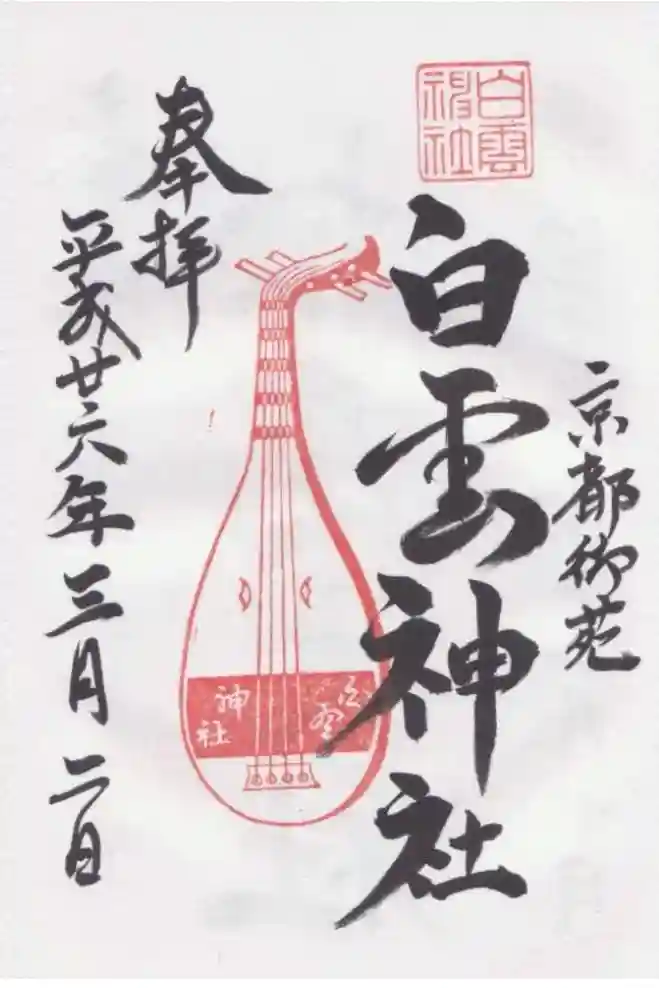 京都御苑
白雲神社
白雲
神社
奉拝
白雲
神社
平成廿六年三月二日